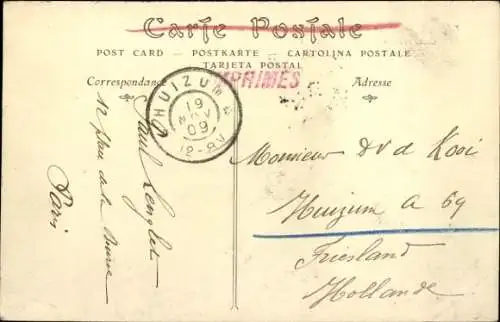 Carte Postale
POST CARD — POSTKARTE — CARTOLINA POSTALE
TARJETA POSTAL
Correspondance
Adresse
IMPRIMÉS
HUIZUM
19
NOV
09
12-8V
Paul Lenglet
12 place de la Bourse
Paris
Monsieur D v d Kooi
Huizum A 69
Friesland
Hollande